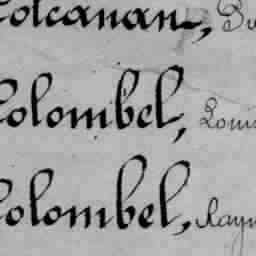 Colcanan,
Colombel, Louis
Colombel, Raym